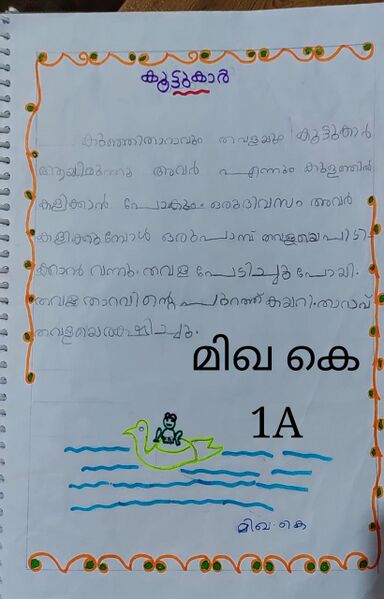 കൂട്ടുകാർ
കുഞ്ഞിതാറാവും തവളയും കൂട്ടുകാർ
ആയിരുന്നു അവർ എന്നും കുളത്തിൽ
കളിക്കാൻ പോകും. ഒരുദിവസം അവർ
കളിക്കുമ്പോൾ ഒരുപാമ്പ് തവളയെ പിടി-
ക്കാൻ വന്നു. തവള പേടിച്ചു പോയി.
തവള താറാവിന്റെ പുറത്ത് കയറി. താറാവ്
തവളയെ രക്ഷിച്ചു.
മിഖ കെ
1A
മിഖ. കെ